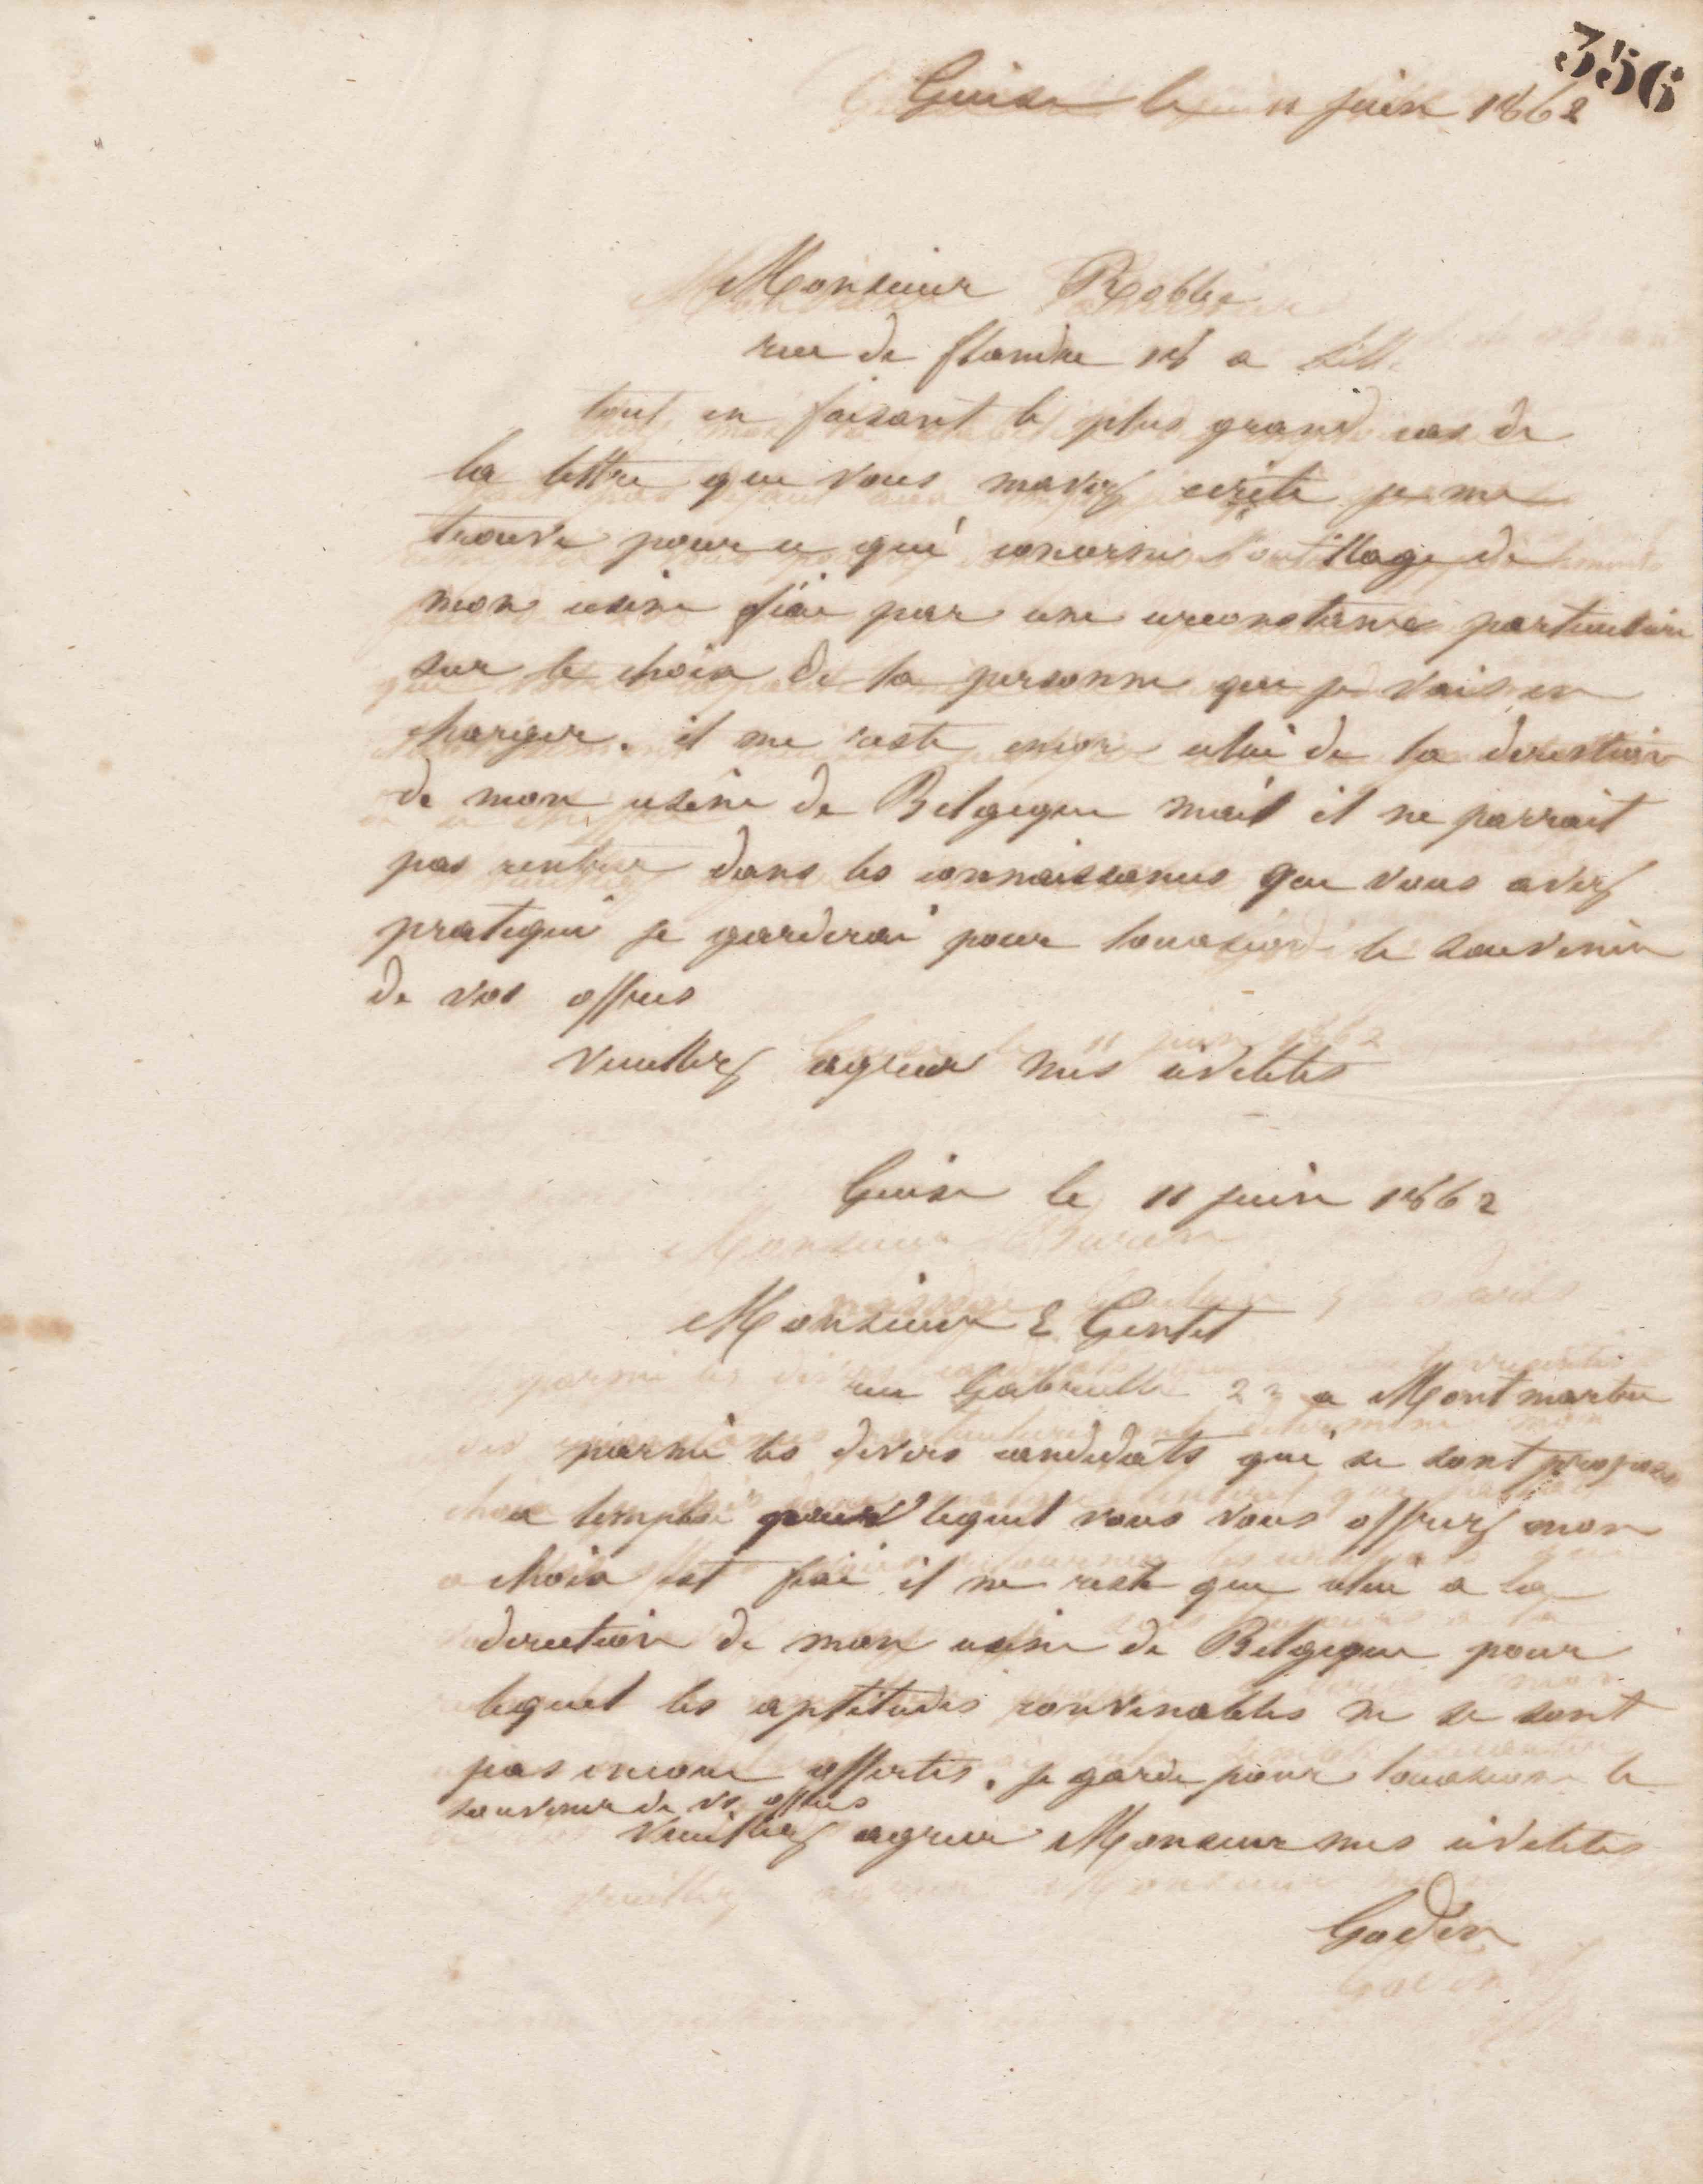 356
Guise le 11 juin 1862
Monsieur Robbe
rue de flandre 18 a Lille
tout en faisant le plus grand cas de
la lettre que vous mavez écrite je me
trouve pour ce qui concerne l'outillage de
mon usine fixé par une circonstance particulière
sur le choix de la personne que je vais en
charger. il me reste encore celui de la direction
de mon usine de Belgique mais il ne parrait
pas rentrer dans les connaissances que vous avez
pratiqué je garderai pour loccasion le souvenir
de vos offres
veuillez agréer mes civilités
Guise le 11 juin 1862
Monsieur E Gentet
rue Gabrielle 23 a Montmartre
parmi les divers candidats qui se sont proposés
a lemploi pour lequel vous vous offrez mon
choix est fixé il ne reste que celui a la
direction de mon usine de Belgique pour
lequel les aptitudes convenables ne se sont
pas encore offertes. je garde pour loccasion le
souvenir de vos offres
veuillez agréer Monsieur mes civilités
Godin